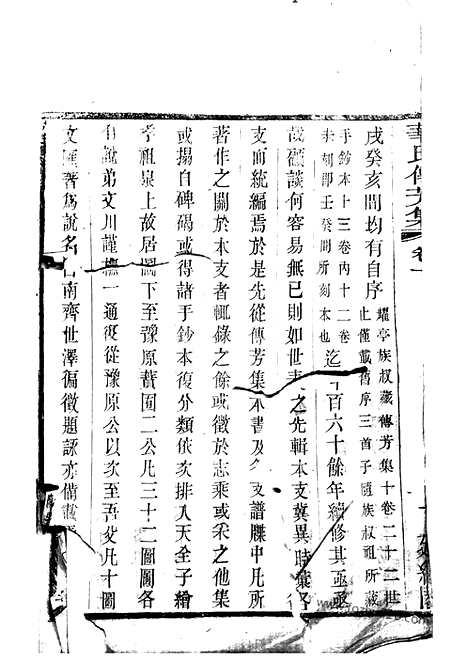 華氏傳芳集 卷一
戌癸亥間均有自序 耀亭族叔藏傳芳集十卷二十二世
止僅載舊序三首子隨族叔祖所藏
手鈔本十三卷內十二卷
未刻即壬癸間所刻本也 迄 百六十餘年續修其亟
哉顧談何容易無已則如世 之先輯本支冀異時彙各
支而統編焉於是先從傳芳集本書及 支譜牒中凡所
著作之關於本支者輒錄之餘或徵於志乘或采之他集
或搨自碑碣或得諸手鈔本復分類依次排入天全子繪
孝祖泉上故居圖下至豫原 二公凡三十二圖圖各
有說弟文川謹橅一通復從豫原公以次至吾父凡十圖
文 著為說名曰南齊世澤徧徵題詠亦備載